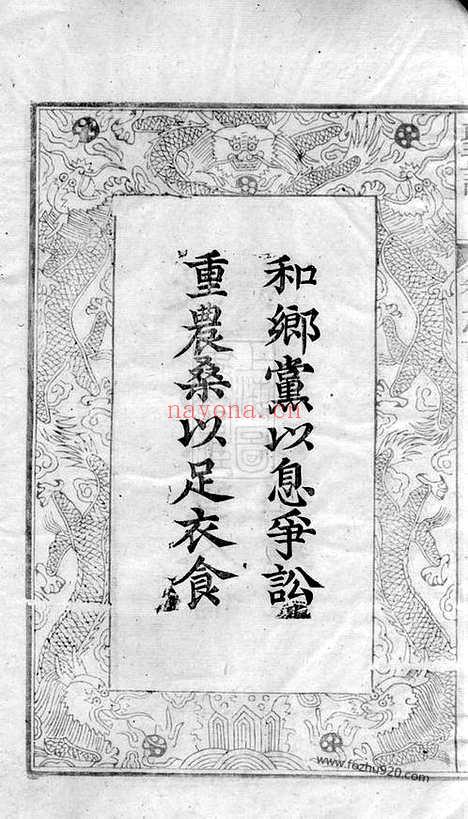 和鄉黨以息爭訟
重農桑以足衣食
nayona.cn
www.fozhu920.com